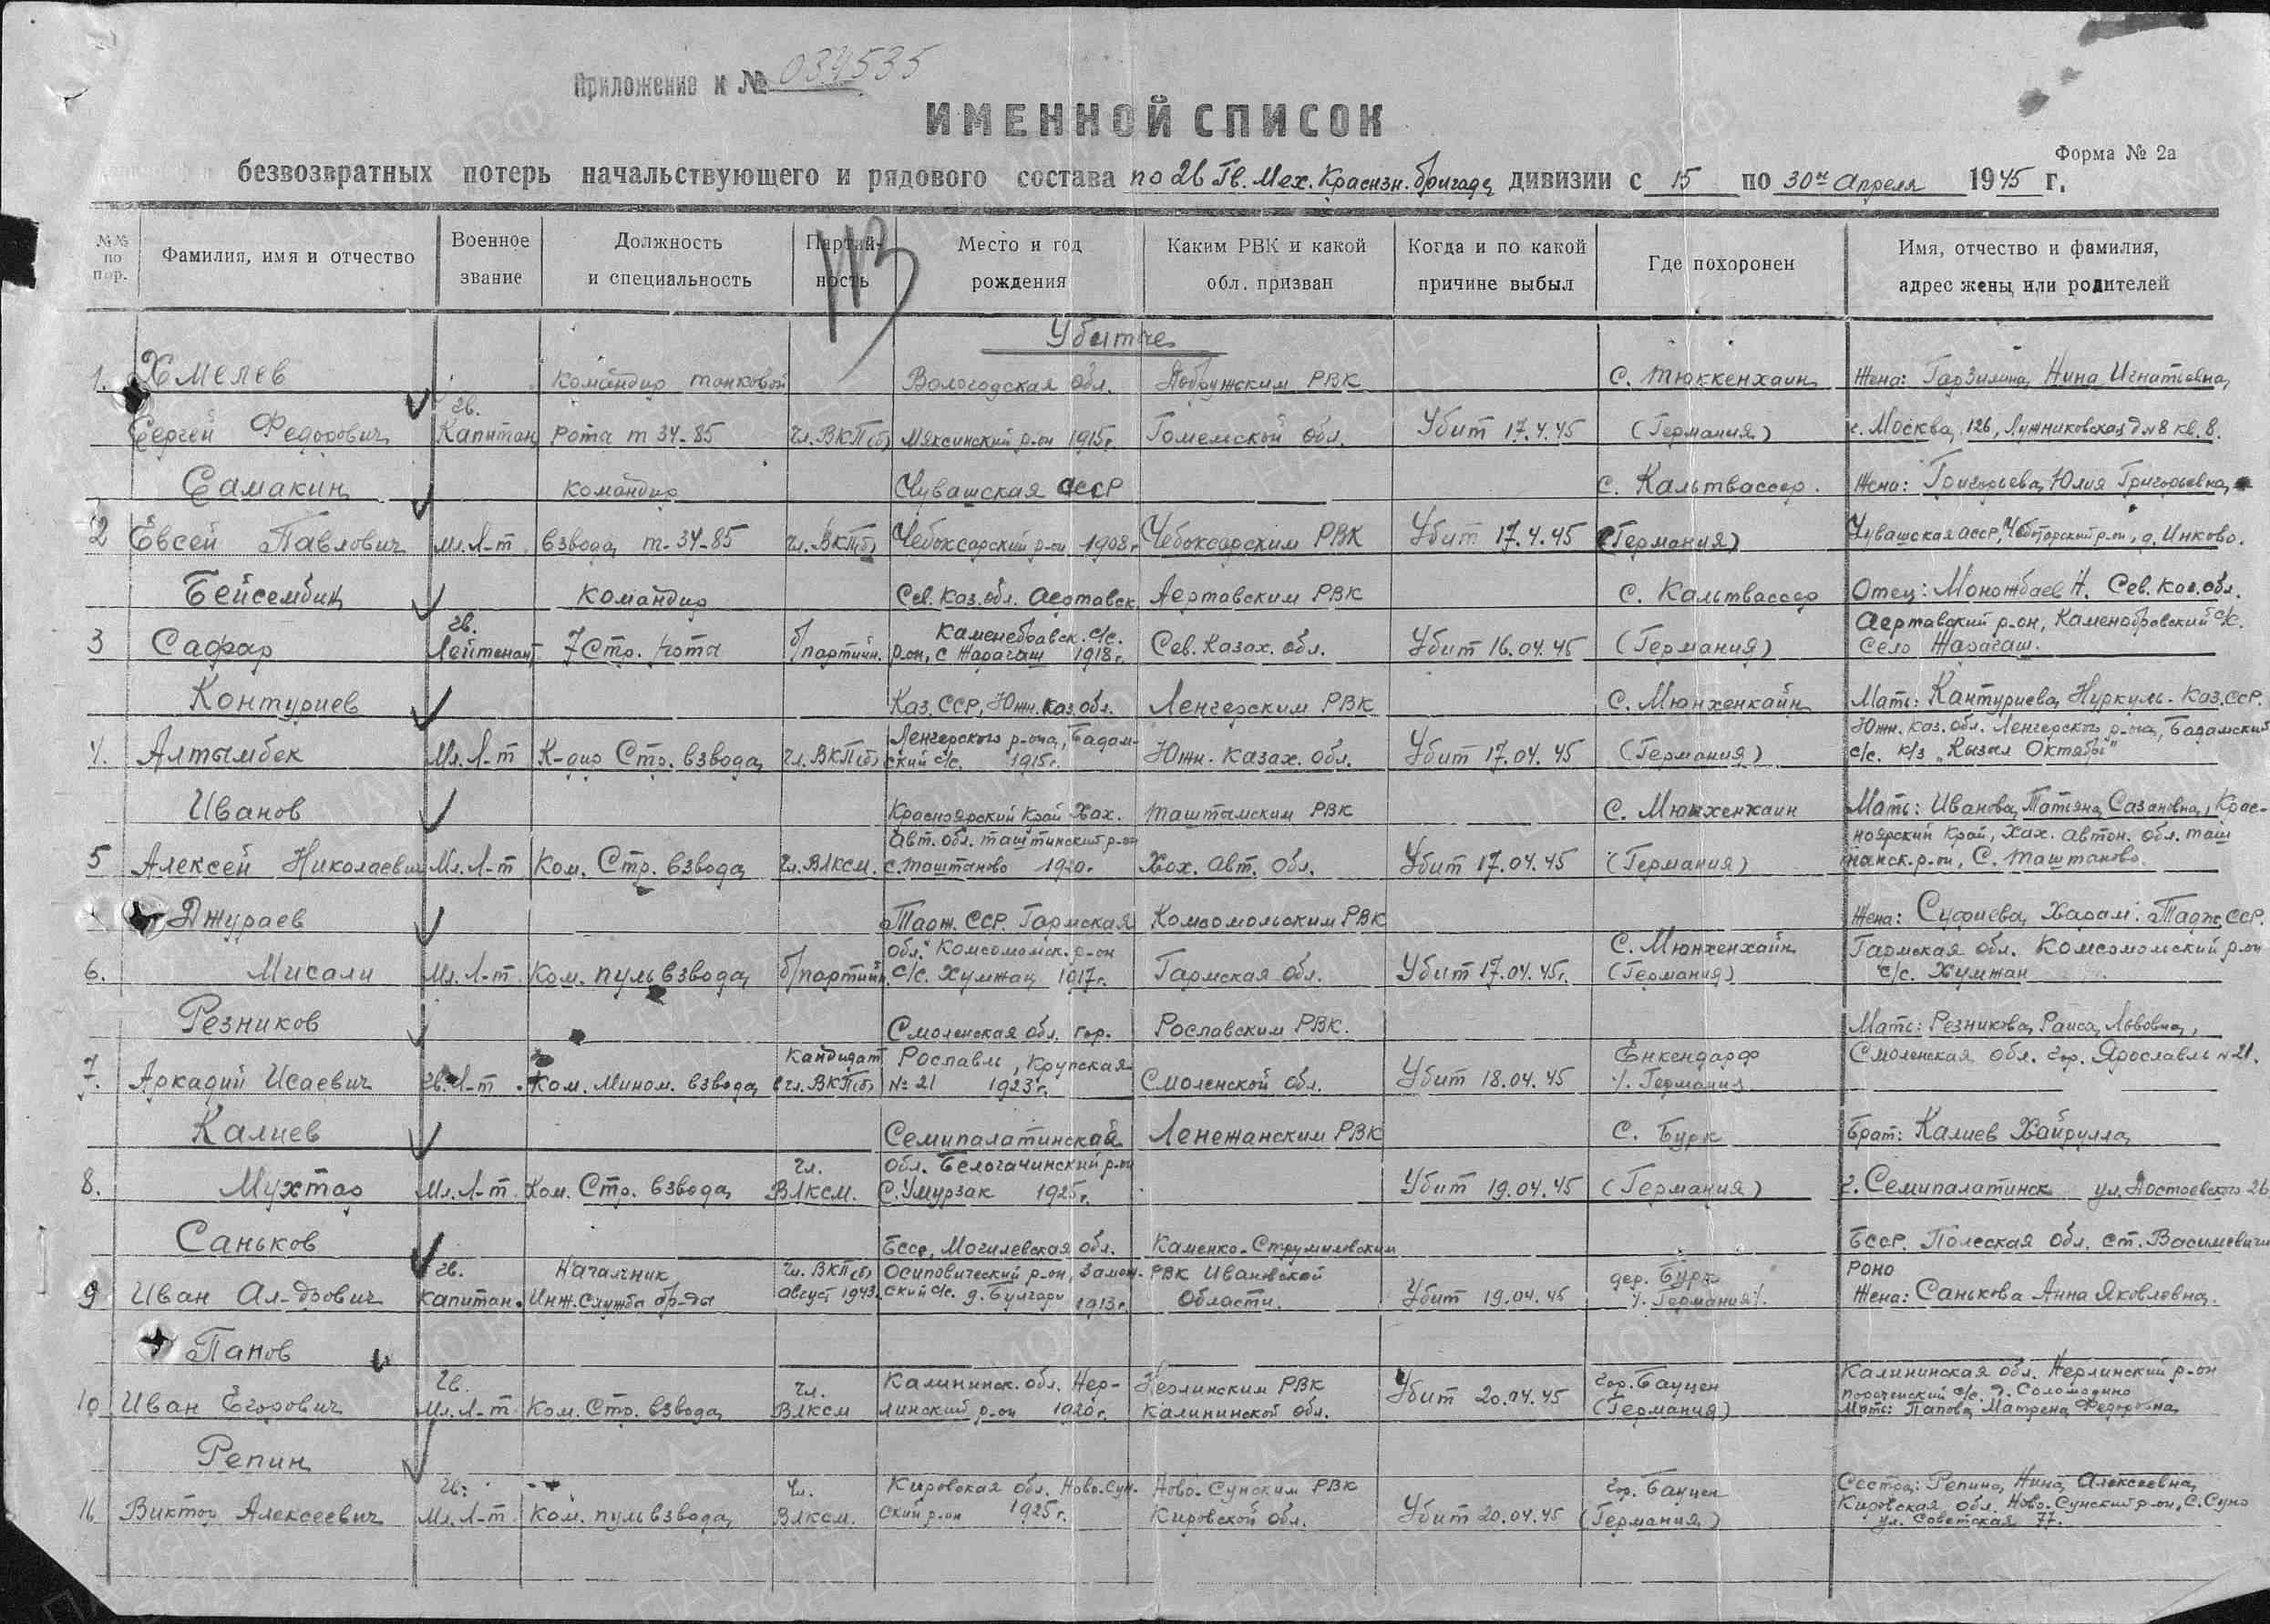 Приложение к № 034535
ИМЕННОЙ СПИСОК
Форма № 2а
безвозвратных потерь начальствующего и рядового состава по 26 Гв. Мех. Краснзн. бригаде дивизии с 15 по 30ое Апреля 1945 г.
№№ по пор.
Фамилия, имя и отчество
Военное звание
Должность и специальность
Партийность
Место и год рождения
Каким РВК и какой обл. призван
Когда и по какой причине выбыл
Где похоронен
Имя, отчество и фамилия, адрес жены или родителей
113
Убитые
1. Хмелев Командир танковой Вологодская обл. Добружским РВК С. Тюккенхаин Жена: Нина Игнатьевна
Сергей Федорович гв. Капитан рота т 34-85 чл. ВКП(б) Мяксинский р-он 1915г. Гомельской обл. Убит 17.4.45 (Германия) г. Москва, 126, Лужниковская д №8 кв. 8.
Самакин командир Чувашская АССР С. Кальтвассер. Жена: Григорьева Юлия Григорьевна
2 Евсей Павлович Мл. Л-т взвода т-34-85 чл. ВКП(б) Чебоксарский р-он 1908г Чебоксарским РВК Убит 17.4.45 (Германия) Чувашская АССР, р-он, д. Инково.
Бейсембин Командир Сев. Каз. обл. Аертавск. Аертавским РВК С. Кальтвассер Отец: Моножбаев Н. Сев. Каз. обл.
3 Сафар гв. Лейтенант 7 Стр. рота б/партийн. Каменобравск. с/с. р-он, с Жарагаш 1918г. Сев. Казах. обл. Убит 16.04.45 (Германия) Аертавский р-он, Каменобровский с/с. Село Жарагаш.
Контуриев Каз. ССР, Южн. Каз. обл. Ленгерским РВК С. Мюнхенхайн Мать: Кантуриева Нуркуль. Каз. ССР.
4. Алтымбек Мл. Л-т К-дир Стр. взвода чл. ВКП(б) Ленгерского р-она, Бадамский с/с. 1915г. Южн. Казах. обл. Убит 17.04.45 (Германия) Южн. Каз. обл. Ленгерского р-она, Бадамский с/с. к/з „Кызыл Октябрь"
Иванов Красноярский Край Хак. Таштымским РВК С. Мюнхенхаин Мать: Иванова Татьяна Сазановна, Крас-
5 Алексей Николаевич Мл. Л-т Ком. Стр. взвода чл. ВЛКСМ. Авт. обл. Таштинский р-он с. Таштаново 1920г. Хак. Авт. обл. Убит 17.04.45 (Германия) ноярский край, Хак. автон. обл. р-он, С. Таштаново.
Джураев Тадж. ССР. Гармская Комсомольским РВК Жена: Суфиева Харам. Тадж. ССР.
6. Мисали Мл. Л-т. Ком. пульвзвода б/партийн. обл. Комсомольск. р-он с/с. Хумжан 1917г. Гармская обл. Убит 17.04.45г. С. Мюнхенхайн (Германия) Гармская обл. Комсомольский р-он с/с. Хумжан
Резников Смоленская обл. гор. Рославским РВК. Мать: Резникова Раиса Львовна,
7. Аркадий Исаевич гв. Л-т Ком. Мином. взвода Кандидат в чл. ВКП(б) Рославль, Крупская № 21 1923г. Смоленской обл. Убит 18.04.45 Енкендарф /. Германия Смоленская обл. гор. Ярославль №21.
Калиев Семипалатинская Ленежанским РВК С. Бурк Брат: Калиев Хайрулла
8. Мухтар Мл. Л-т. Ком. Стр. взвода чл. ВЛКСМ. обл. Белогачинский р-он С. Умурзак 1925г. Убит 19.04.45 (Германия) г. Семипалатинск ул. Достоевского 26
Саньков БССР, Могилевская обл. Каменко-Струмиловским БССР. Полесская обл. ст. Василевичи
9 Иван Ал-дрович гв. капитан. Начальник Инж. службы бр-ды чл. ВКП(б) август 1943 Осиповический р-он, Замошский с/с. д. Булгари 1913г. РВК Ивановской области. Убит 19.04.45 дер. Бурк /. Германия/. РОНО Жена: Санькова Анна Яковлевна.
Панов
10 Иван Егорович гв. Мл. Л-т Ком. Стр. взвода чл. ВЛКСМ Калининск. обл. Нерлинский р-он 1920г. Нерлинским РВК Калининской обл. Убит 20.04.45 гор. Бауцен (Германия) Калининская обл. Нерлинский р-он с/с. д. Соломодино Мать: Папова Матрена Федоровна
Репин
11. Виктор Алексеевич гв. Мл. Л-т Ком. пульвзвода Чл. ВЛКСМ. Кировская обл. Ново-Сунский р-он 1925г. Ново-Сунским РВК Кировской обл. Убит 20.04.45 гор. Бауцен (Германия) Сестра: Репина Нина Алексеевна Кировская обл. Ново-Сунский р-он, С. Суна ул. Советская 77.